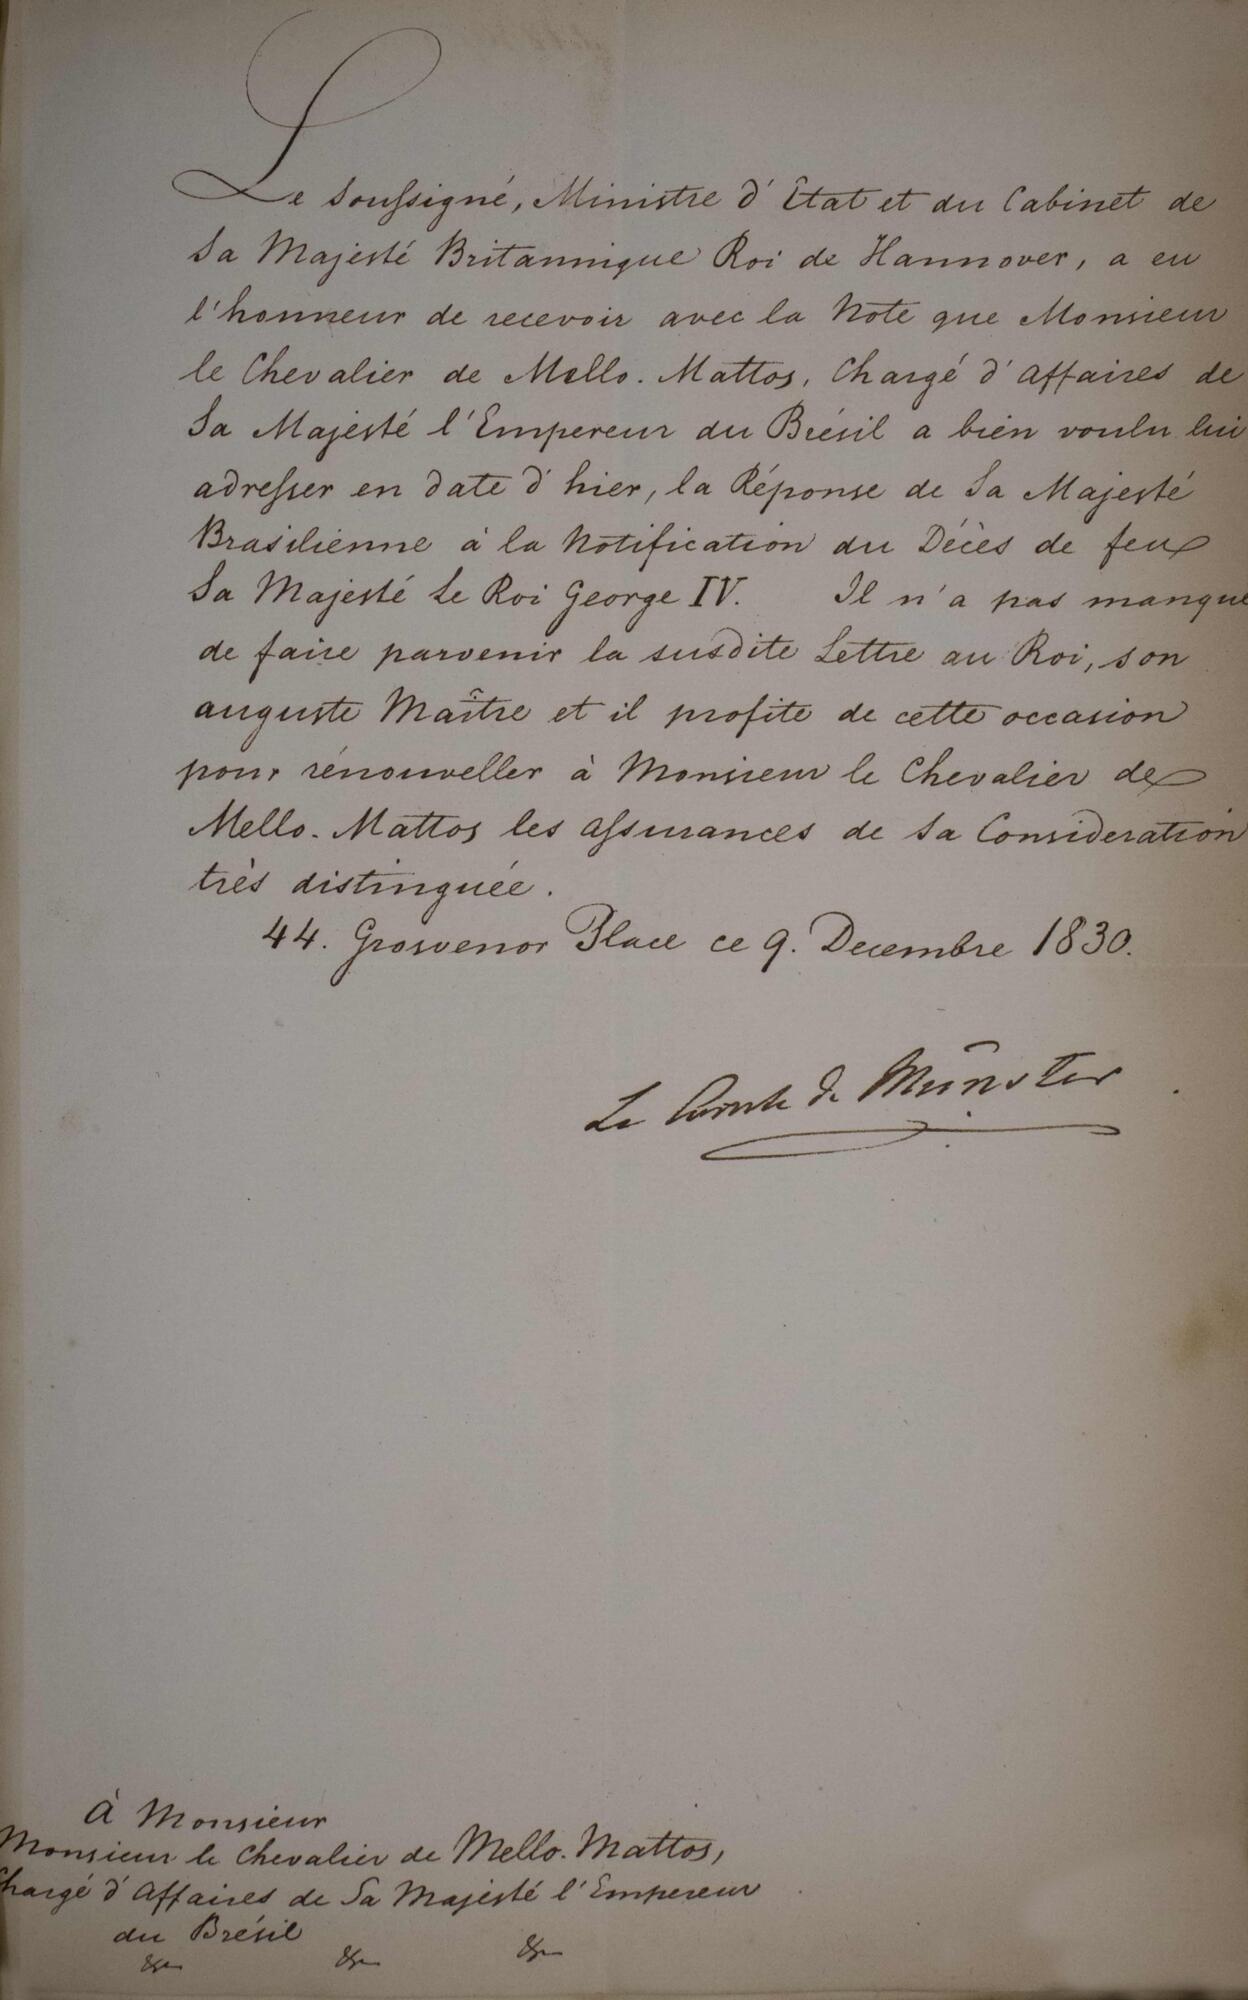 Le Soussigné, Ministre d'État et du Cabinet de
Sa Majesté Britannique Roi de Hannover, a eu
l'honneur de recevoir avec la Note que Monsieur
le Chevalier de Mello-Mattos, Chargé d'Affaires de
Sa Majesté l'Empereur du Brésil a bien voulu lui
adresser en date d'hier, la Réponse de Sa Majesté
Brasilienne à la Notification du Décès de feu
Sa Majesté Le Roi George IV. Il n'a pas manqué
de faire parvenir la susdite Lettre au Roi, son
auguste Maître et il profite de cette occasion
pour rénouveller à Monsieur le Chevalier de
Mello-Mattos les assurances de Sa Consideration
très distinguée.
44. Grosvenor Place ce 9. Decembre 1830.
Le Comte de Münster
À Monsieur
Monsieur le Chevalier de Mello-Mattos,
Chargé d'Affaires de Sa Majesté l'Empereur
du Brésil
&c &c &c